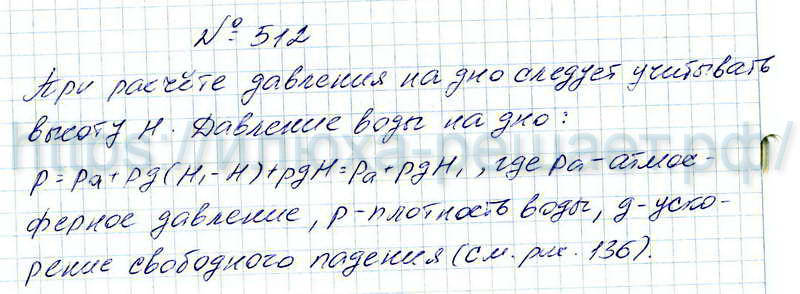 № 512
При расчёте давления на дно следует учитывать
высоту H. Давление воды на дно:
p = pa + ρg(H₁ - H) + ρgH = pa + ρgH₁, где pa - атмос-
ферное давление, ρ - плотность воды, g - уско-
рение свободного падения (см. рис. 136).